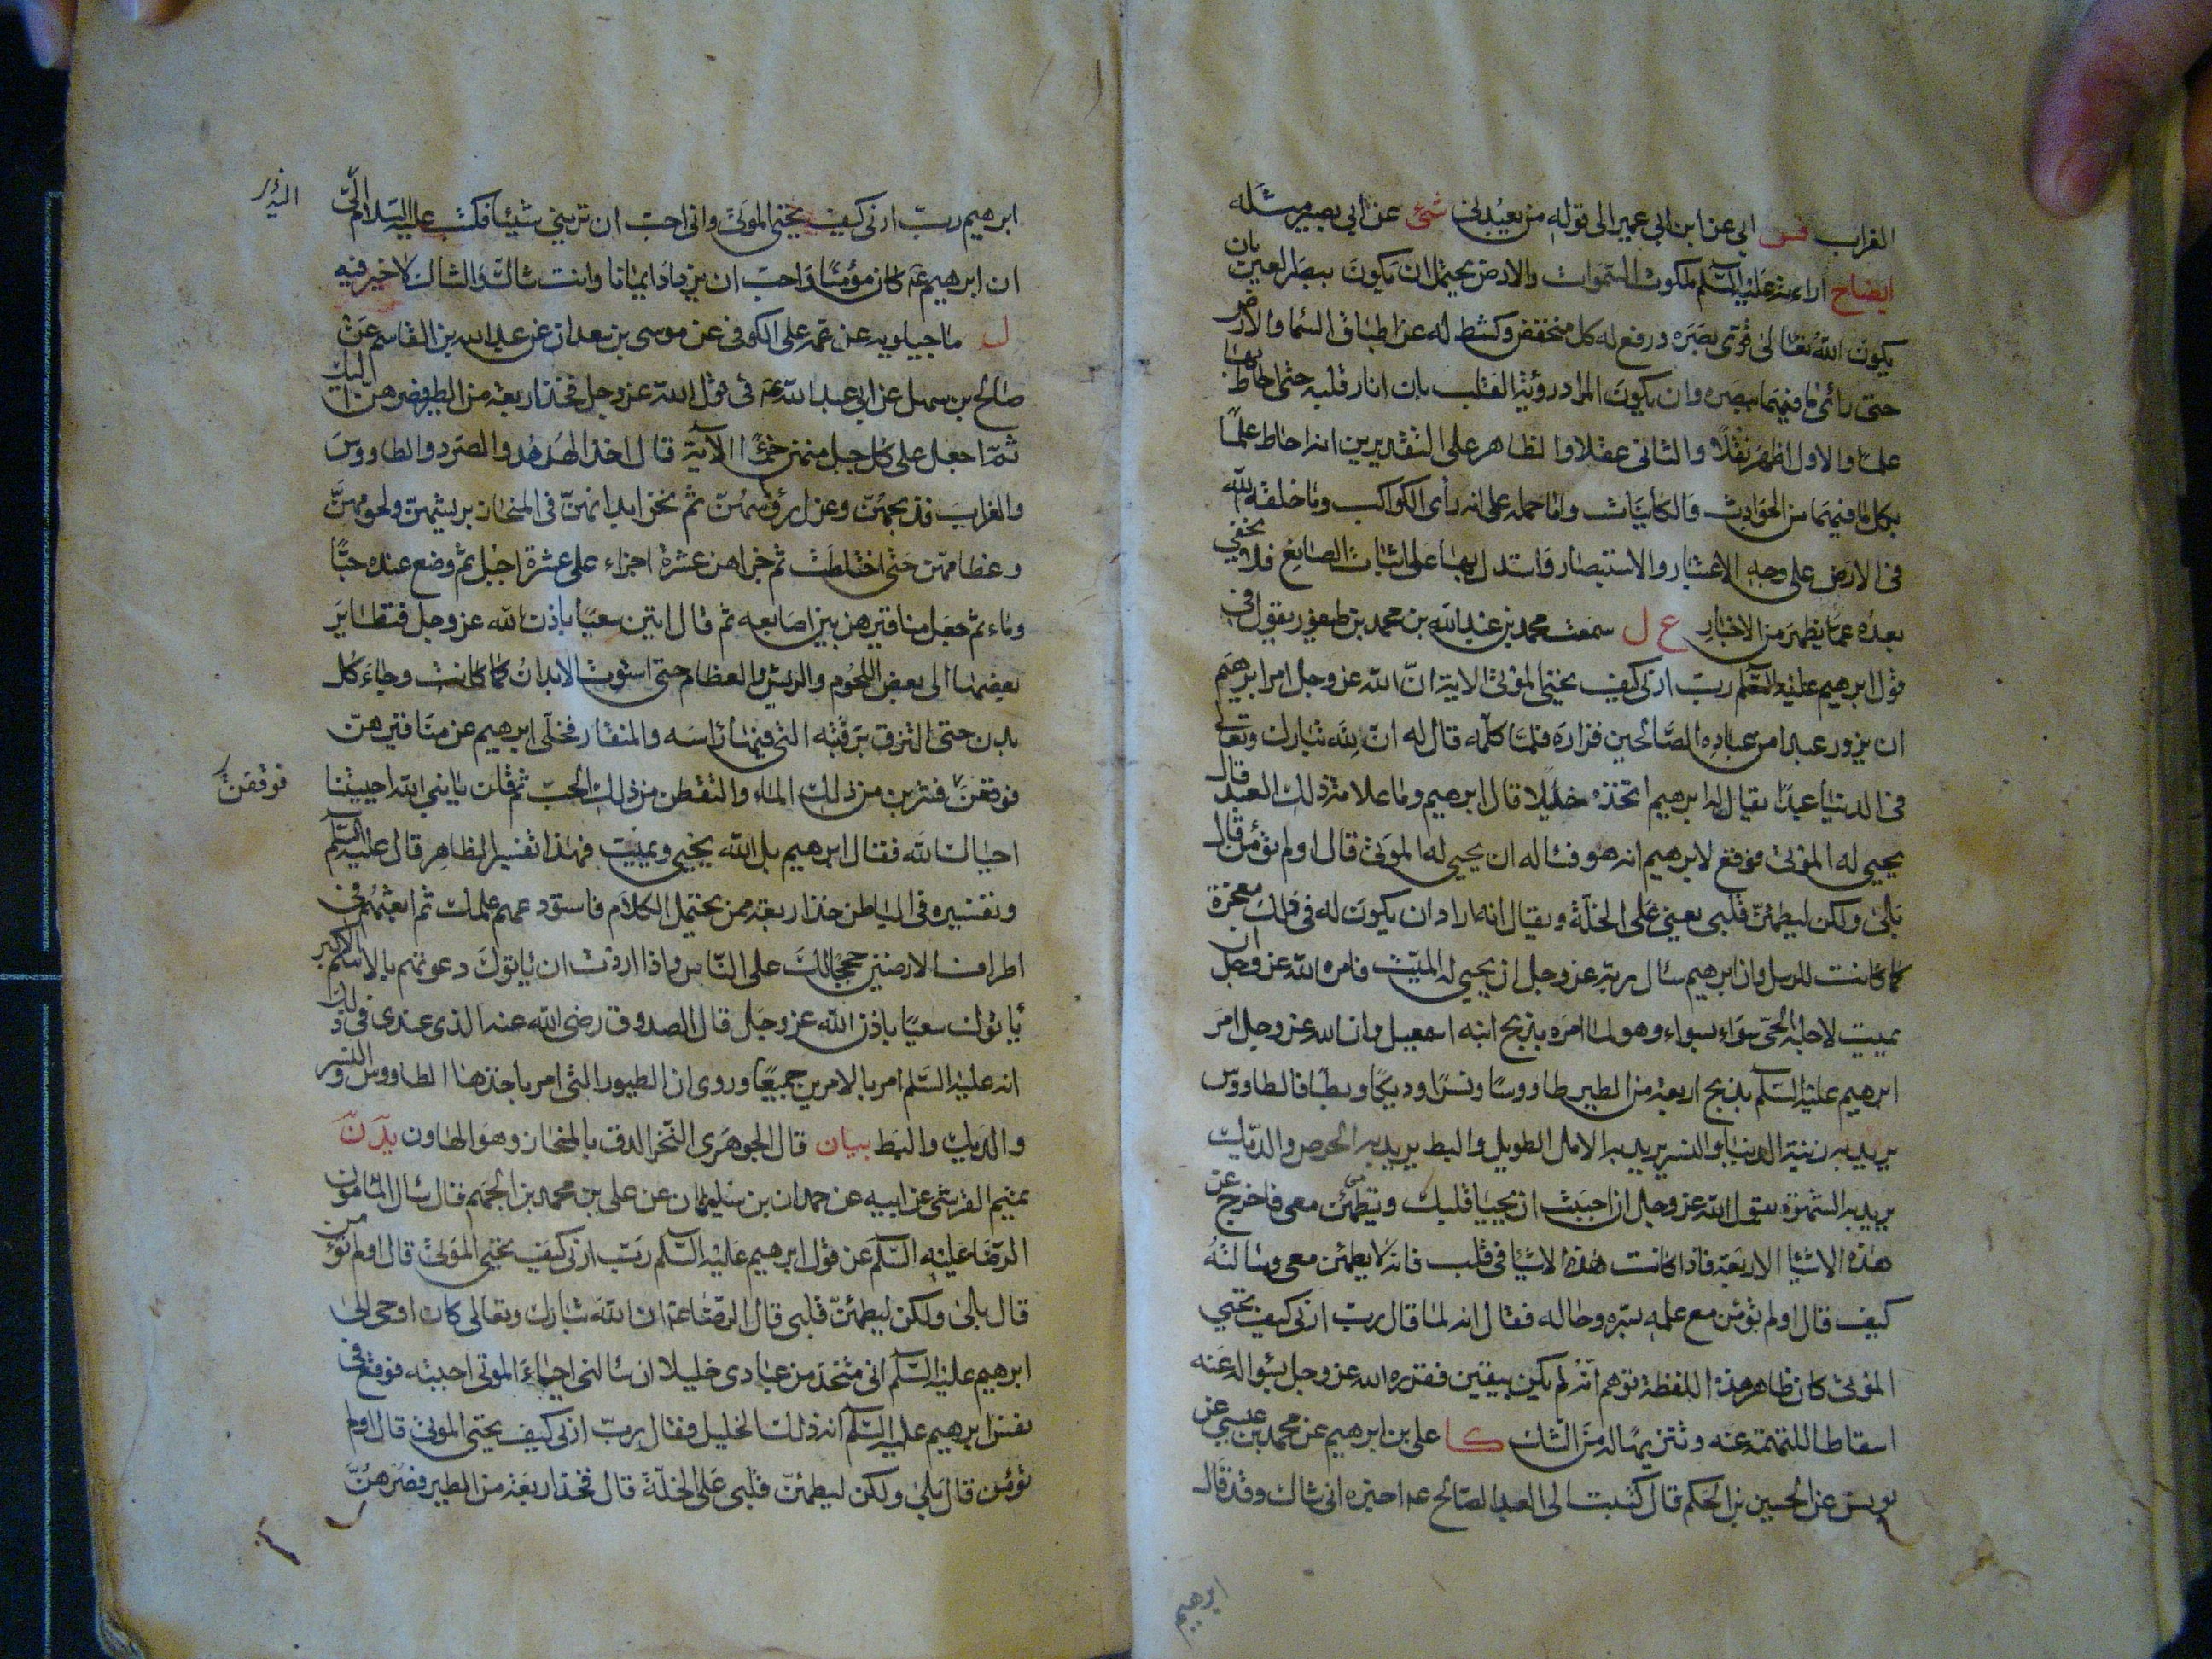 الغراب فس ابي عن ابن ابي عمير الى قوله من بعيد لى شئ عن ابي بصير مثله
ايضاح اراءته عليه السلم ملكوت السموات والارض يحتمل ان يكون ببصر العين بان
يكون الله تعالى قوى بصره ورفع له كل منخفض وكشط له عن اطباق السما والارض
حتى راى ما فيهما ببصره وان يكون المراد رؤية القلب بان انار قلبه حتى احاط بها
علما والاول اظهر نقلا والثانى عقلا والظاهر على التقديرين انه احاط علما
بكل ما فيهما من الحوادث والكائنات واما حمله على انه راى الكواكب وما خلقه الله
فى الارض على وجه الاعتبار والاستبصار واستدل بها على اثبات الصانع فلا يخفى
بعده عما يظهر من الاخبار ع ل سمعت محمد بن عبد الله بن محمد بن طيفور يقول فى
قول ابرهيم عليه السلم رب ارنى كيف يحيى الموتى الاية ان الله عز وجل امر ابرهيم
ان يزور عبدا من عباده الصالحين فزاره فلما كلمه قال له ان لله تبارك وتعالى
فى الدنيا عبدا يقال له ابرهيم اتخذه خليلا قال ابرهيم وما علامة ذلك العبد قال
يحيى له الموتى فوقع لابرهيم انه هو فساله ان يحيى له الموتى قال اولم تؤمن قال
بلى ولكن ليطمئن قلبى يعنى على الخلة ويقال انه اراد ان يكون له فى ذلك معجزة
كما كانت للرسل وان ابرهيم سال ربه عز وجل ان يحيى له الميت فامره الله عز وجل ان
يميت لاجله الحى سواء بسواء وهو لما امره بذبح ابنه اسمعيل وان الله عز وجل امر
ابرهيم عليه السلم بذبح اربعة من الطير طاووسا ونسرا وديكا وبطا فالطاووس
يريد به زينة الدنيا والنسر يريد به الامل الطويل والبط يريد به الحرص والديك
يريد به الشهوة يقول الله عز وجل ان احببت ان يحيا قلبك وتطمئن معى فاخرج عن
هذه الاشيا الاربعة فاذا كانت هذه الاشيا فى قلب فانه لا يطمئن معى وسالته
كيف قال اولم تؤمن مع علمه بسره وحاله فقال انه لما قال رب ارنى كيف تحيى
الموتى كان ظاهر هذه اللفظة توهم انه لم يكن بيقين فقرره الله عز وجل بسواله عنه
اسقاطا للتهمة عنه وتنزيها له من الشك كا على بن ابرهيم عن محمد بن عيسى عن
يونس عن الحسين بن الحكم قال كتبت الى العبد الصالح ع احبره انى شاك وقد قال
ابرهيم
ابرهيم رب ارنى كيف يحيى الموتى وانى احب ان ترينى شيئا فكتب عليه السلام الى
ان ابرهيم ع كان مؤمنا واحب ان يزداد ايمانا وانت شاك والشاك لا خير فيه
ل ماجيلويه عن عمه على الكوفى عن موسى بن سعدان عن عبد الله بن القاسم عن
صالح بن سهل عن ابي عبد الله ع فى قول الله عز وجل فخذ اربعة من الطير فصرهن اليك
ثم اجعل على كل جبل منهن جزءا الاية قال اخذ الهدهد والصرد والطاووس
والغراب فذبحهن وعزل رؤسهن ثم نخر ابدانهن فى المنحاز بريشهن ولحومهن
وعظامهن حتى اختلطت ثم جزاهن عشرة اجزاء على عشرة اجبل ثم وضع عنده حبا
وماء ثم جعل مناقيرهن بين اصابعه ثم قال ايتين سعيا باذن الله عز وجل فتطاير
بعضها الى بعض اللحوم والريش والعظام حتى استوت الابدان كما كانت وجاء كل
بدن حتى التزق برقبته التى فيها راسه والمنقار فخلى ابرهيم عن مناقيرهن
فوقعن فشربن من ذلك الماء والتقطن من ذلك الحب ثم قلن يا نبى الله احييتنا
فوقفن
احياك الله فقال ابرهيم بل الله يحيى ويميت فهذا تفسير الظاهر قال عليه السلم
وتفسيره فى الباطن خذ اربعة ممن يحتمل الكلام فاستودعهم علمك ثم ابعثهم فى
اطراف الارضين حججا لك على الناس واذا اردت ان ياتوك دعوتهم بالاسم الاكبر
ياتونك سعيا باذن الله عز وجل قال الصدوق رضى الله عنه الذى عندى فى ذلك
انه عليه السلم امر بالامرين جميعا وروى ان الطيور التى امر باخذها الطاووس والنسر
والديك والبط بيان قال الجوهرى النحز الدق بالمنحاز وهو الهاون يد ن
تميم القرشى عن ابيه عن حمدان بن سليمان عن على بن محمد بن الجهم قال سال المامون
الرضا عليه السلم عن قول ابرهيم عليه السلم رب ارنى كيف تحيى الموتى قال اولم تؤمن
قال بلى ولكن ليطمئن قلبى قال الرضا ع ان الله تبارك وتعالى كان اوحى الى
ابرهيم عليه السلم انى متخذ من عبادى خليلا ان سالنى احياء الموتى اجبته فوقع فى
نفس ابرهيم عليه السلم انه ذلك الخليل فقال رب ارنى كيف يحيى الموتى قال اولم
تؤمن قال بلى ولكن ليطمئن قلبى على الخلة قال فخذ اربعة من الطير فصرهن